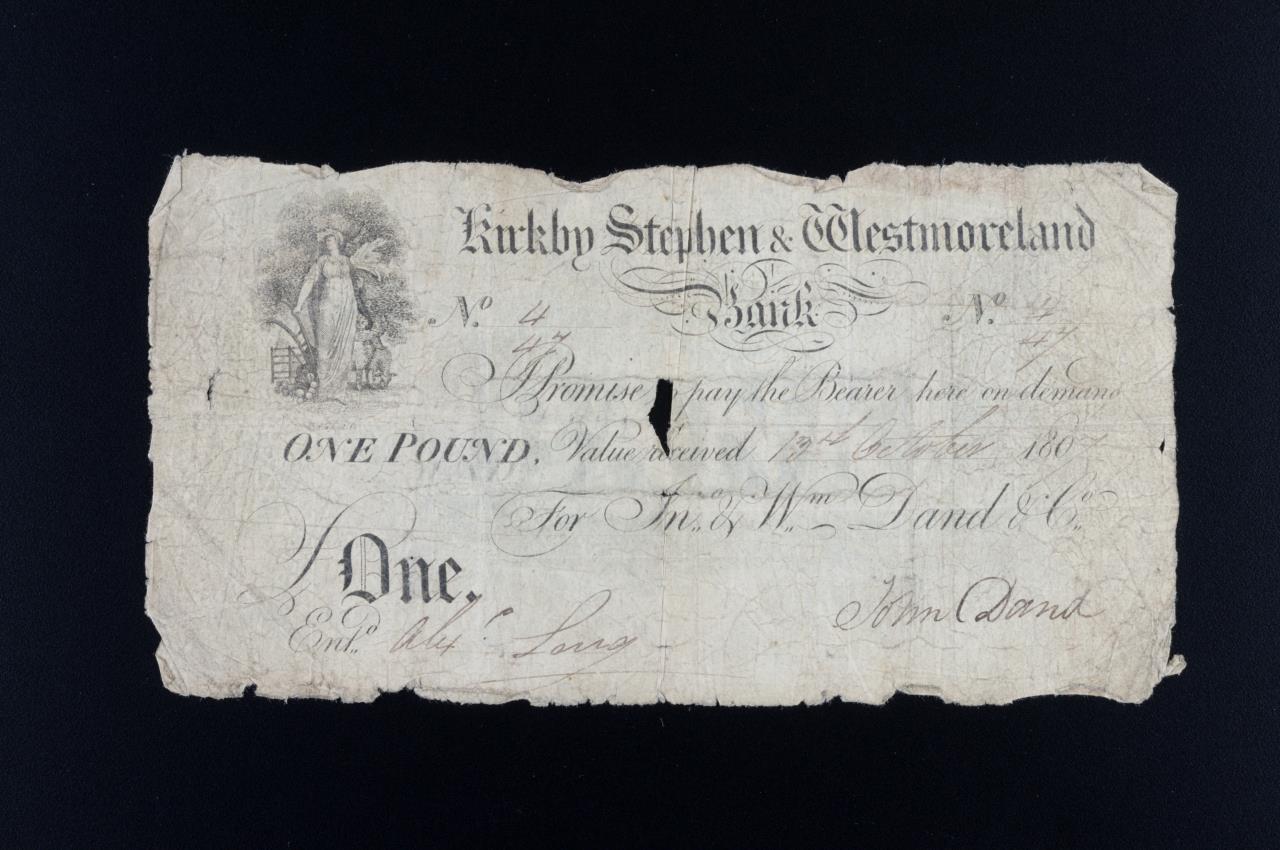 Kirkby Stephen & Westmoreland
Bank
No. 4 No. 4
47 47
I Promise pay the Bearer here on demand
ONE POUND, Value received 13th October 1807
For Jn.. & Wm.. Dand & Co..
£ One.
Entd.. Alexr
John Dand